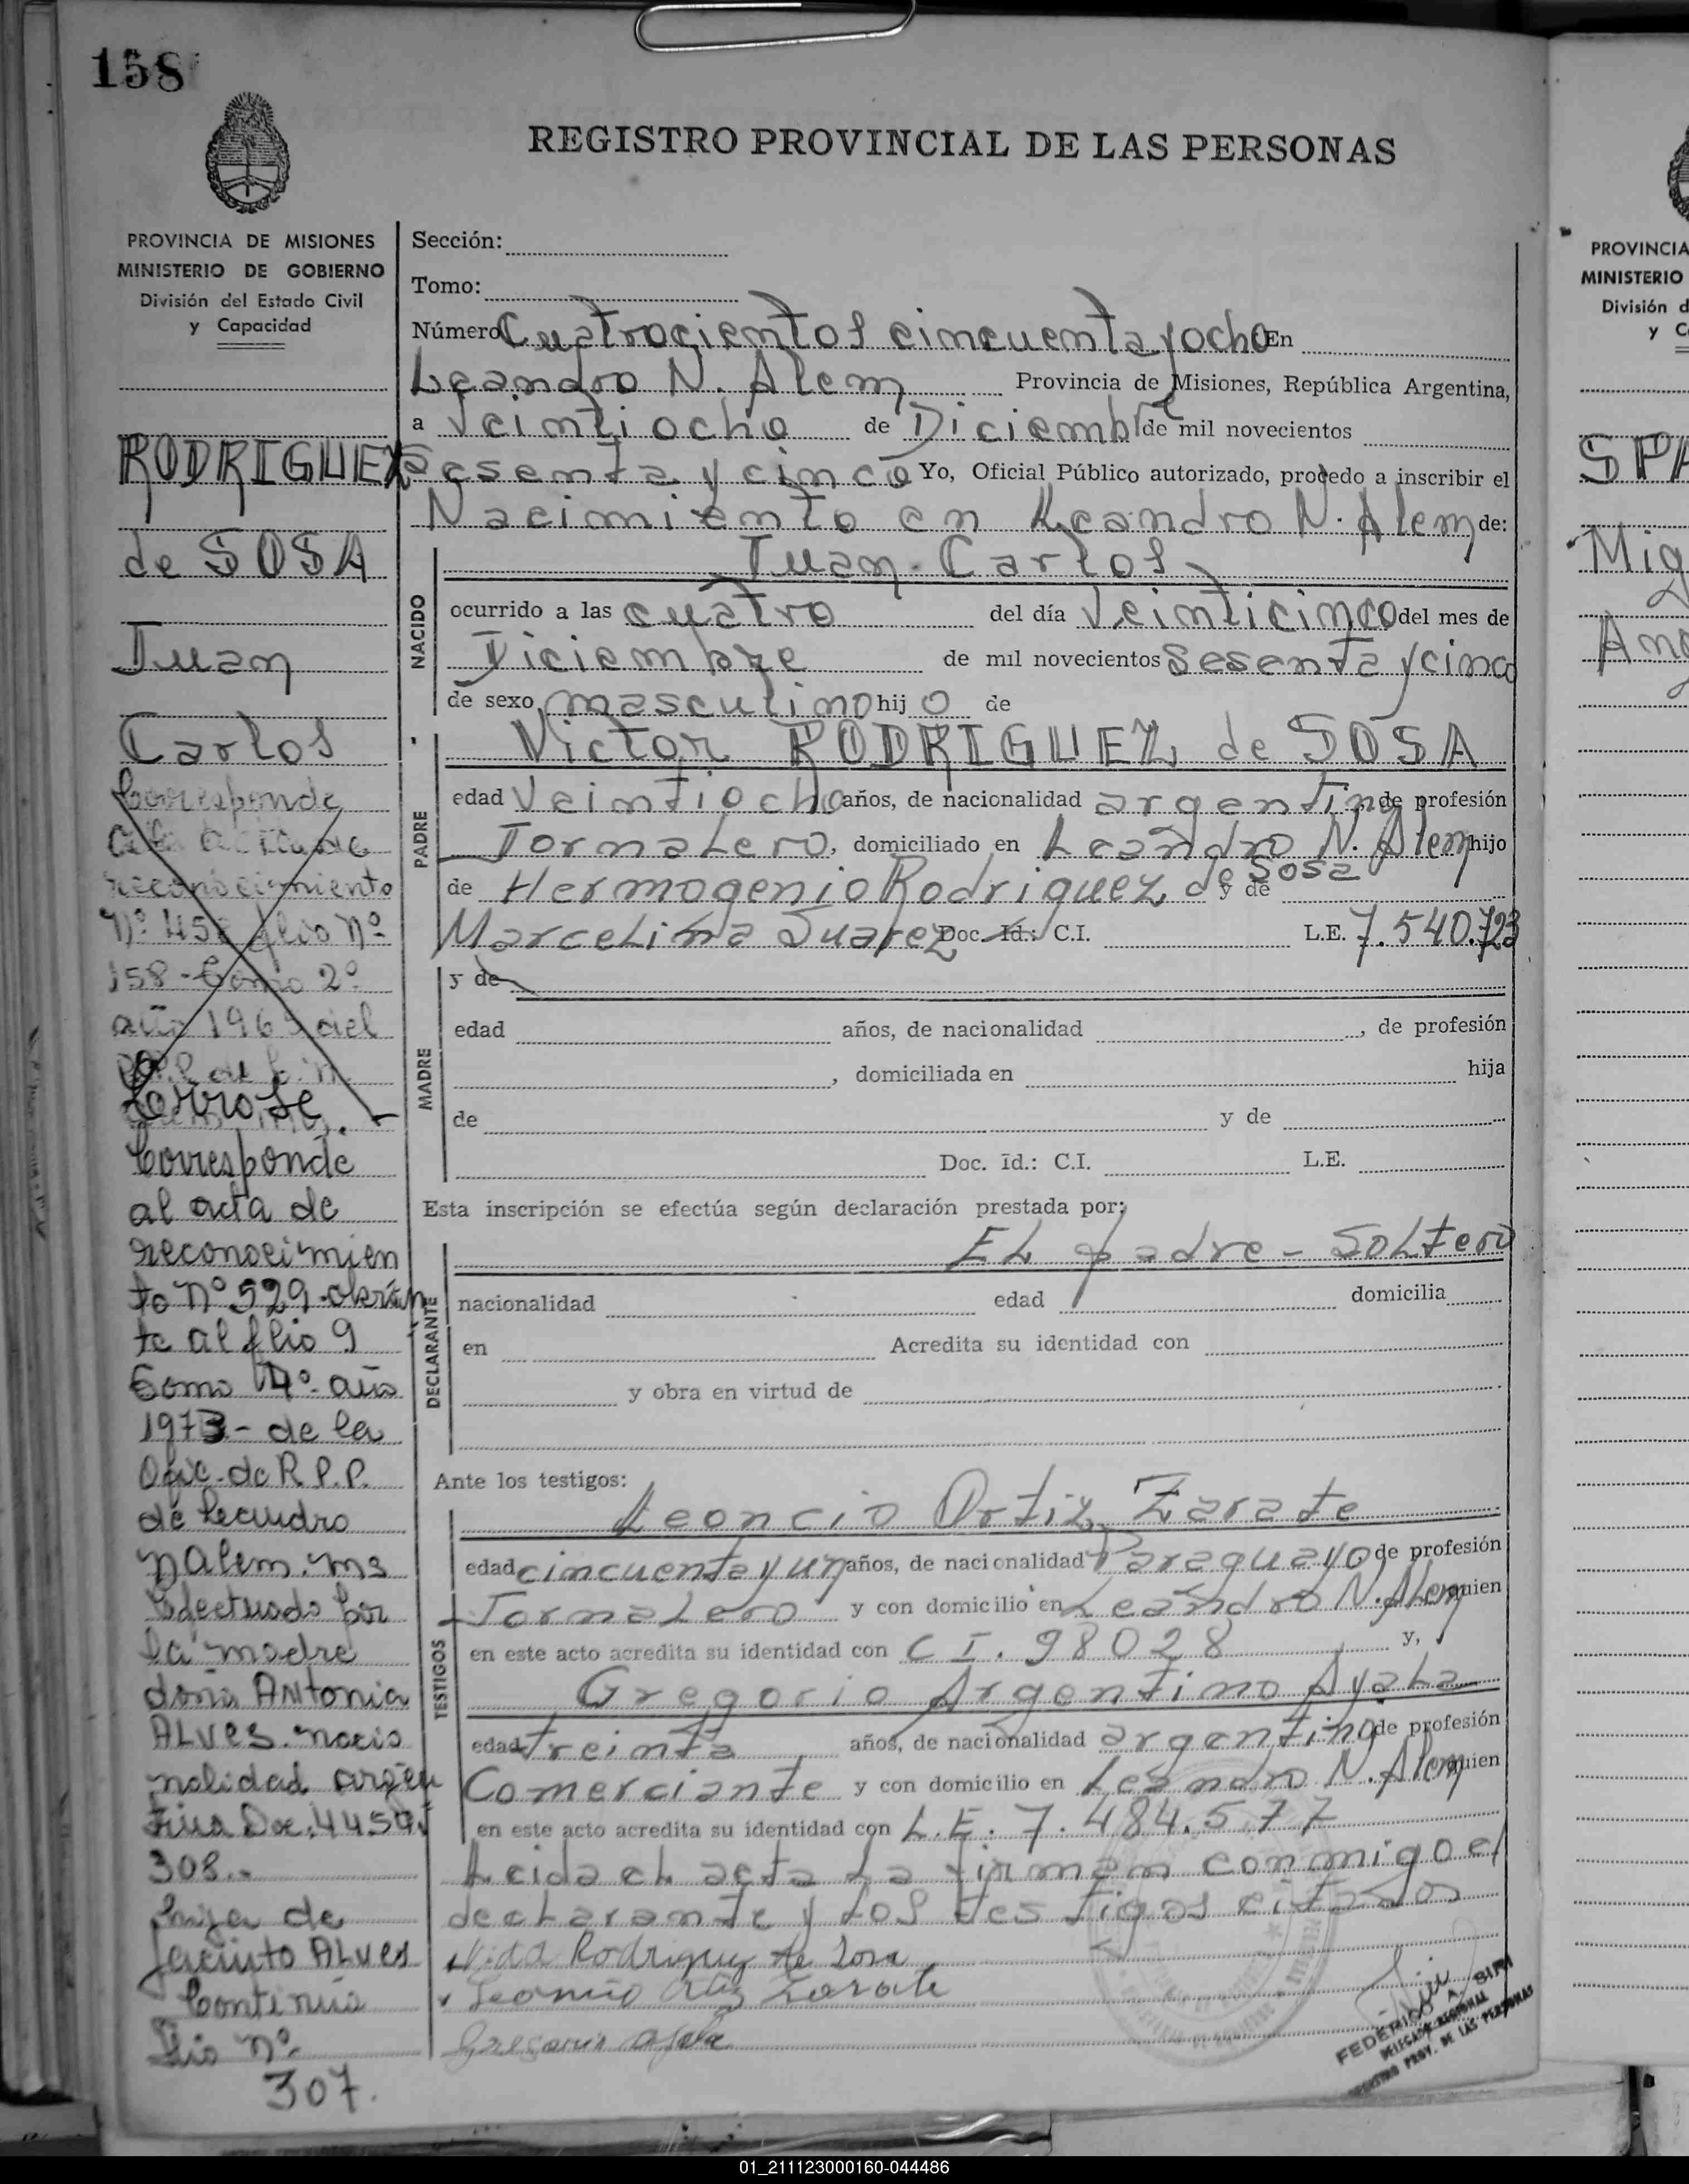 158
REGISTRO PROVINCIAL DE LAS PERSONAS
PROVINCIA DE MISIONES
MINISTERIO DE GOBIERNO
División del Estado Civil
y Capacidad
RODRIGUEZ
de SOSA
Juan
Carlos
Corresponde
reconocimiento
Nº 458 flio Nº
158 - Tomo 2º
año 1965 del
Errose.
Corresponde
al acta de
reconocimien
to nº 529 - obran
te al flio 9
Tomo 4º - año
1973 - de la
Ofic. de R.P.P.
de Leandro
N Alem. Ms
Efectuado por
la madre
doña Antonia
ALVES. nacio
nalidad argen
tina Doc: 4459
308.-
hija de
Jacinto ALVES
Continúa
flio nº
307.
Sección:
Tomo:
Número Cuatrocientos cincuenta y ocho En
Leandro N. Alem Provincia de Misiones, República Argentina,
a Veintiocho de Diciembre de mil novecientos
sesenta y cinco Yo, Oficial Público autorizado, procedo a inscribir el
Nacimiento en Leandro N. Alem de:
NACIDO
Juan Carlos
ocurrido a las cuatro del día Veinticinco del mes de
Diciembre de mil novecientos sesenta y cinco
de sexo masculino hij o de
PADRE
Victor RODRIGUEZ de SOSA
edad Veintiocho años, de nacionalidad argentina de profesión
Jornalero, domiciliado en Leandro N. Alem hijo
de Hermogenio Rodriguez de Sosa y de
Marcelina Suarez Doc. Id.: C.I. L.E. 7.540.723
MADRE
y de
edad años, de nacionalidad , de profesión
, domiciliada en hija
de y de
Doc. Id.: C.I. L.E.
Esta inscripción se efectúa según declaración prestada por:
DECLARANTE
El padre - Soltero
nacionalidad edad domicilia
en Acredita su identidad con
y obra en virtud de
Ante los testigos:
TESTIGOS
Leoncio Ortiz Zarate
edad cincuenta y un años, de nacionalidad Paraguayo de profesión
Jornalero y con domicilio en Leandro N. Alem quien
en este acto acredita su identidad con C I. 98028 y,
Gregorio Argentino Ayala
edad treinta años, de nacionalidad argentino de profesión
Comerciante y con domicilio en Leandro N. Alem quien
en este acto acredita su identidad con L.E. 7.484.577
Leida el acta la firman conmigo el
declarante y los testigos citados
Rodriguez de Sosa
Leoncio Ortiz Zarate
Gregorio Ayala
FEDERICO A. SIRI
DELEGADO REGIONAL
REGISTRO PROV. DE LAS PERSONAS
PROVINCIA
MINISTERIO
División d
y C
SPA
Mig
Ang
01_211123000160-044486